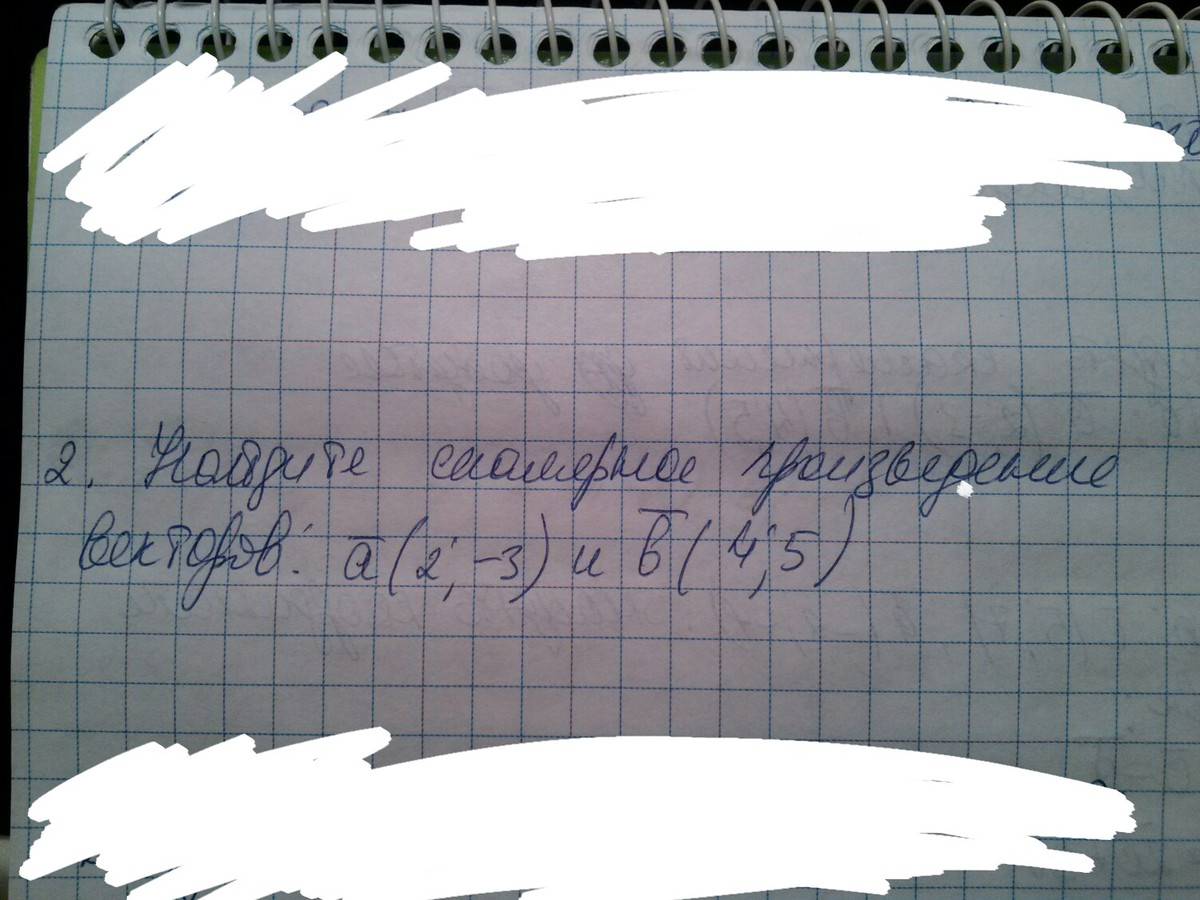 2. Найдите скалярное произведение
векторов: a̅ (2; -3) и b̅ (4; 5)